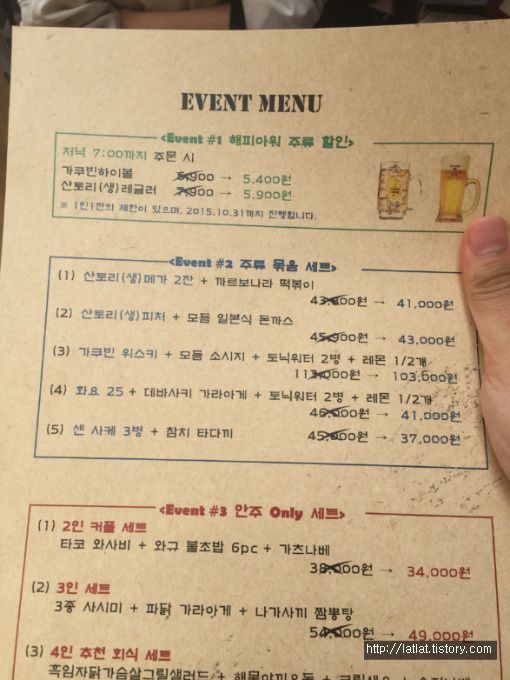 EVENT MENU
<Event #1 해피아워 주류 할인>
저녁 7:00까지 주문 시
가쿠빈하이볼 6,900 → 5,400원
산토리(생)레귤러 7,900 → 5,900원
※ 1인1잔의 제한이 있으며, 2015.10.31까지 진행합니다.
<Event #2 주류 묶음 세트>
(1) 산토리(생)메가 2잔 + 까르보나라 떡볶이
43,000원 → 41,000원
(2) 산토리(생)피처 + 모듬 일본식 돈까스
45,900원 → 43,000원
(3) 가쿠빈 위스키 + 모듬 소시지 + 토닉워터 2병 + 레몬 1/2개
113,000원 → 103,000원
(4) 화요 25 + 데바사키 가라아게 + 토닉워터 2병 + 레몬 1/2개
46,000원 → 41,000원
(5) 센 사케 3병 + 참치 타다끼 45,000원 → 37,000원
<Event #3 안주 Only 세트>
(1) 2인 커플 세트
타코 와사비 + 와규 불초밥 6pc + 가츠나베
38,000원 → 34,000원
(2) 3인 세트
3종 사시미 + 파닭 가라아게 + 나가사끼 짬뽕탕
54,000원 → 49,000원
(3) 4인 추천 회식 세트
흑임자닭가슴살그릴샐러드 + 해물야끼우동 +
http://latlat.tistory.com